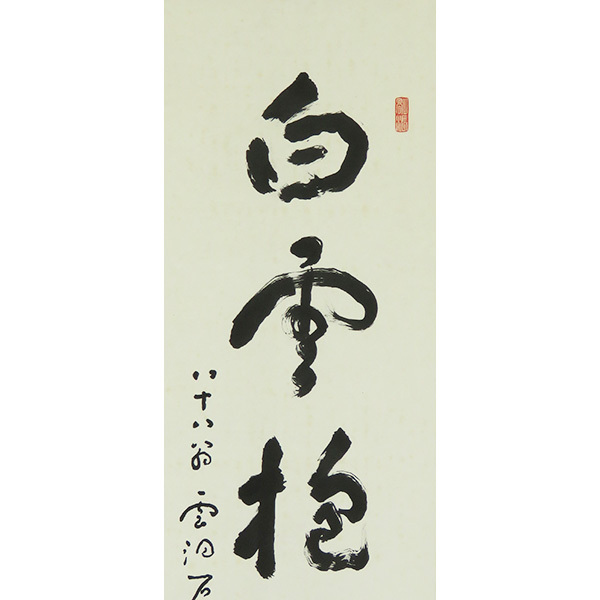 白雲抱
八十八翁 雲洞石